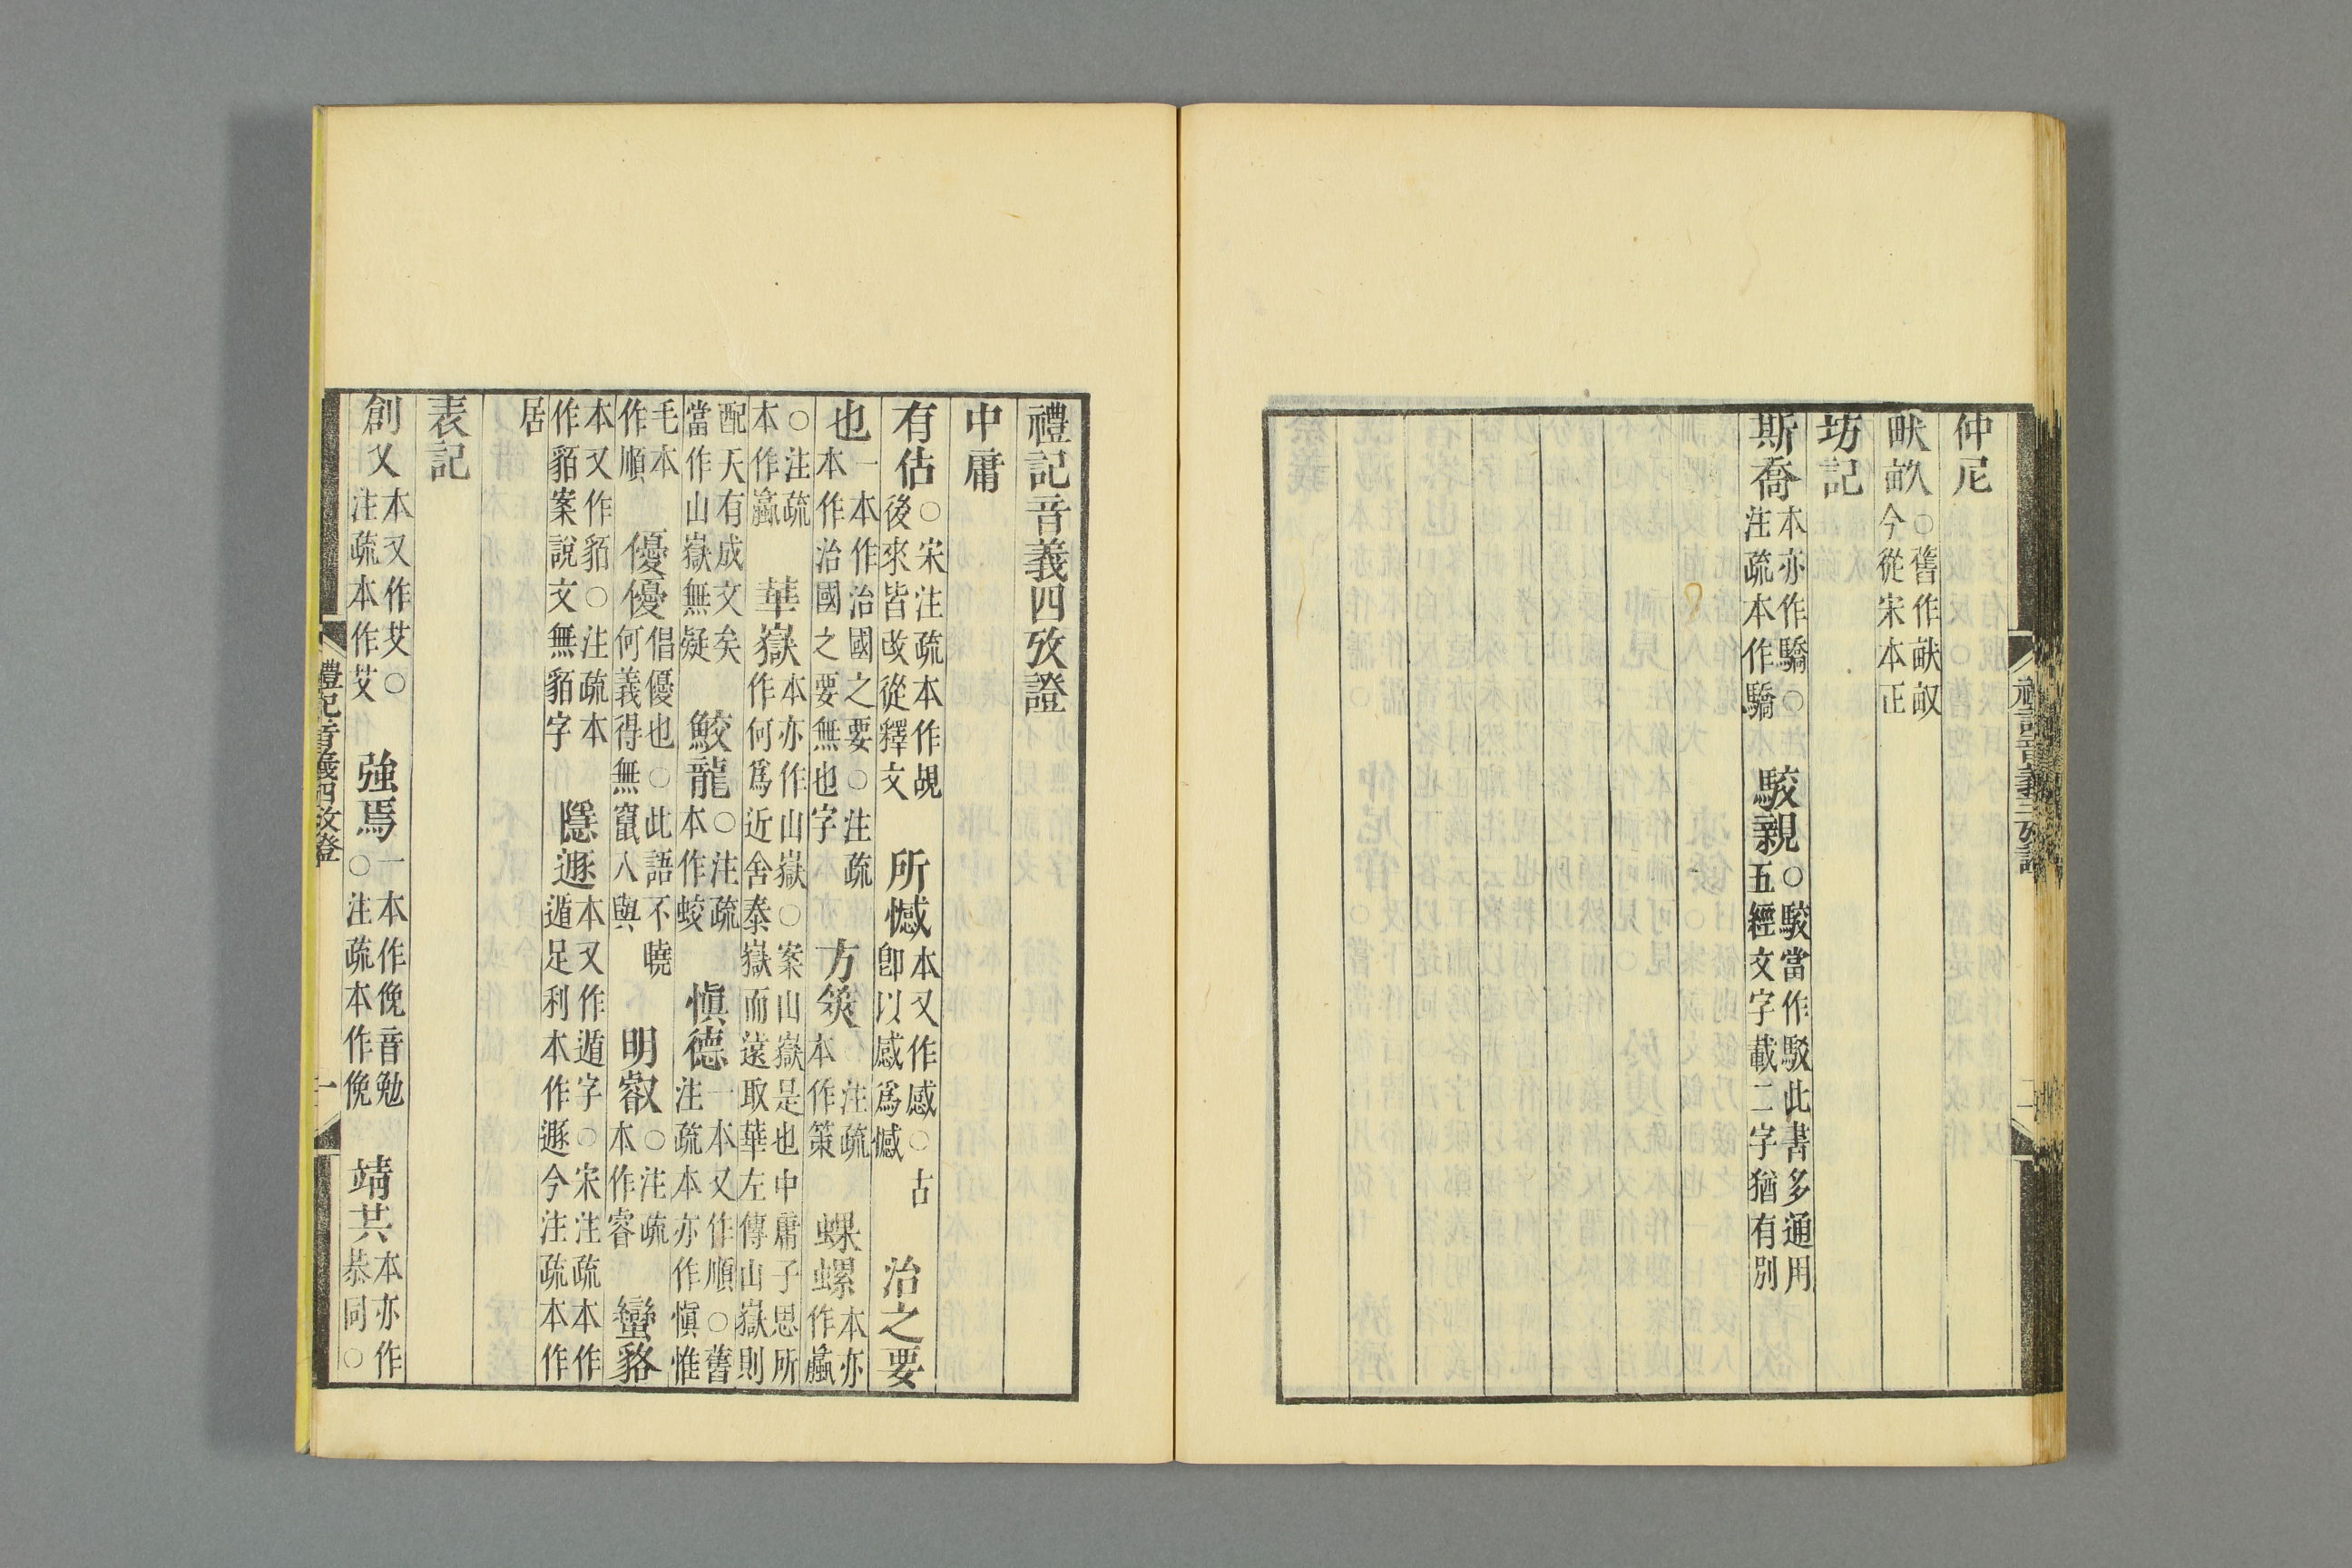 仲尼
畎畝○舊作畎畝今從宋本正
坊記
斯喬本亦作驕○注疏本作驕 駮親○駮當作駁此書多通用五經文字載二字猶有別
禮記音義四攷證
中庸
有佔○宋注疏本作覘後來皆改從釋文 所憾本又作感○古卽以感爲憾 治之要
也一本作治國之要○注疏本作治國之要無也字 方筴注疏本作策 蜾螺本亦作蠃
○注疏本作蠃 華嶽本亦作山嶽○案山嶽是也中庸子思所作何爲近舍泰嶽而遠取華左傳山嶽則
配天有成文矣當作山嶽無疑 鮫龍○注疏本作蛟 慎德一本又作順○舊注疏本亦作慎惟
毛本作順 優優倡優也○此語不曉何義得無竄人與 明叡○注疏本作睿 蠻貉
本又作貊○注疏本作貊案說文無貊字 隱遯本又作遁字○宋注疏本作遁足利本作遯今注疏本作
居
表記
創乂本又作艾○注疏本作艾 強焉一本作俛音勉○注疏本作俛 靖共本亦作恭同○
禮記音義四攷證
一